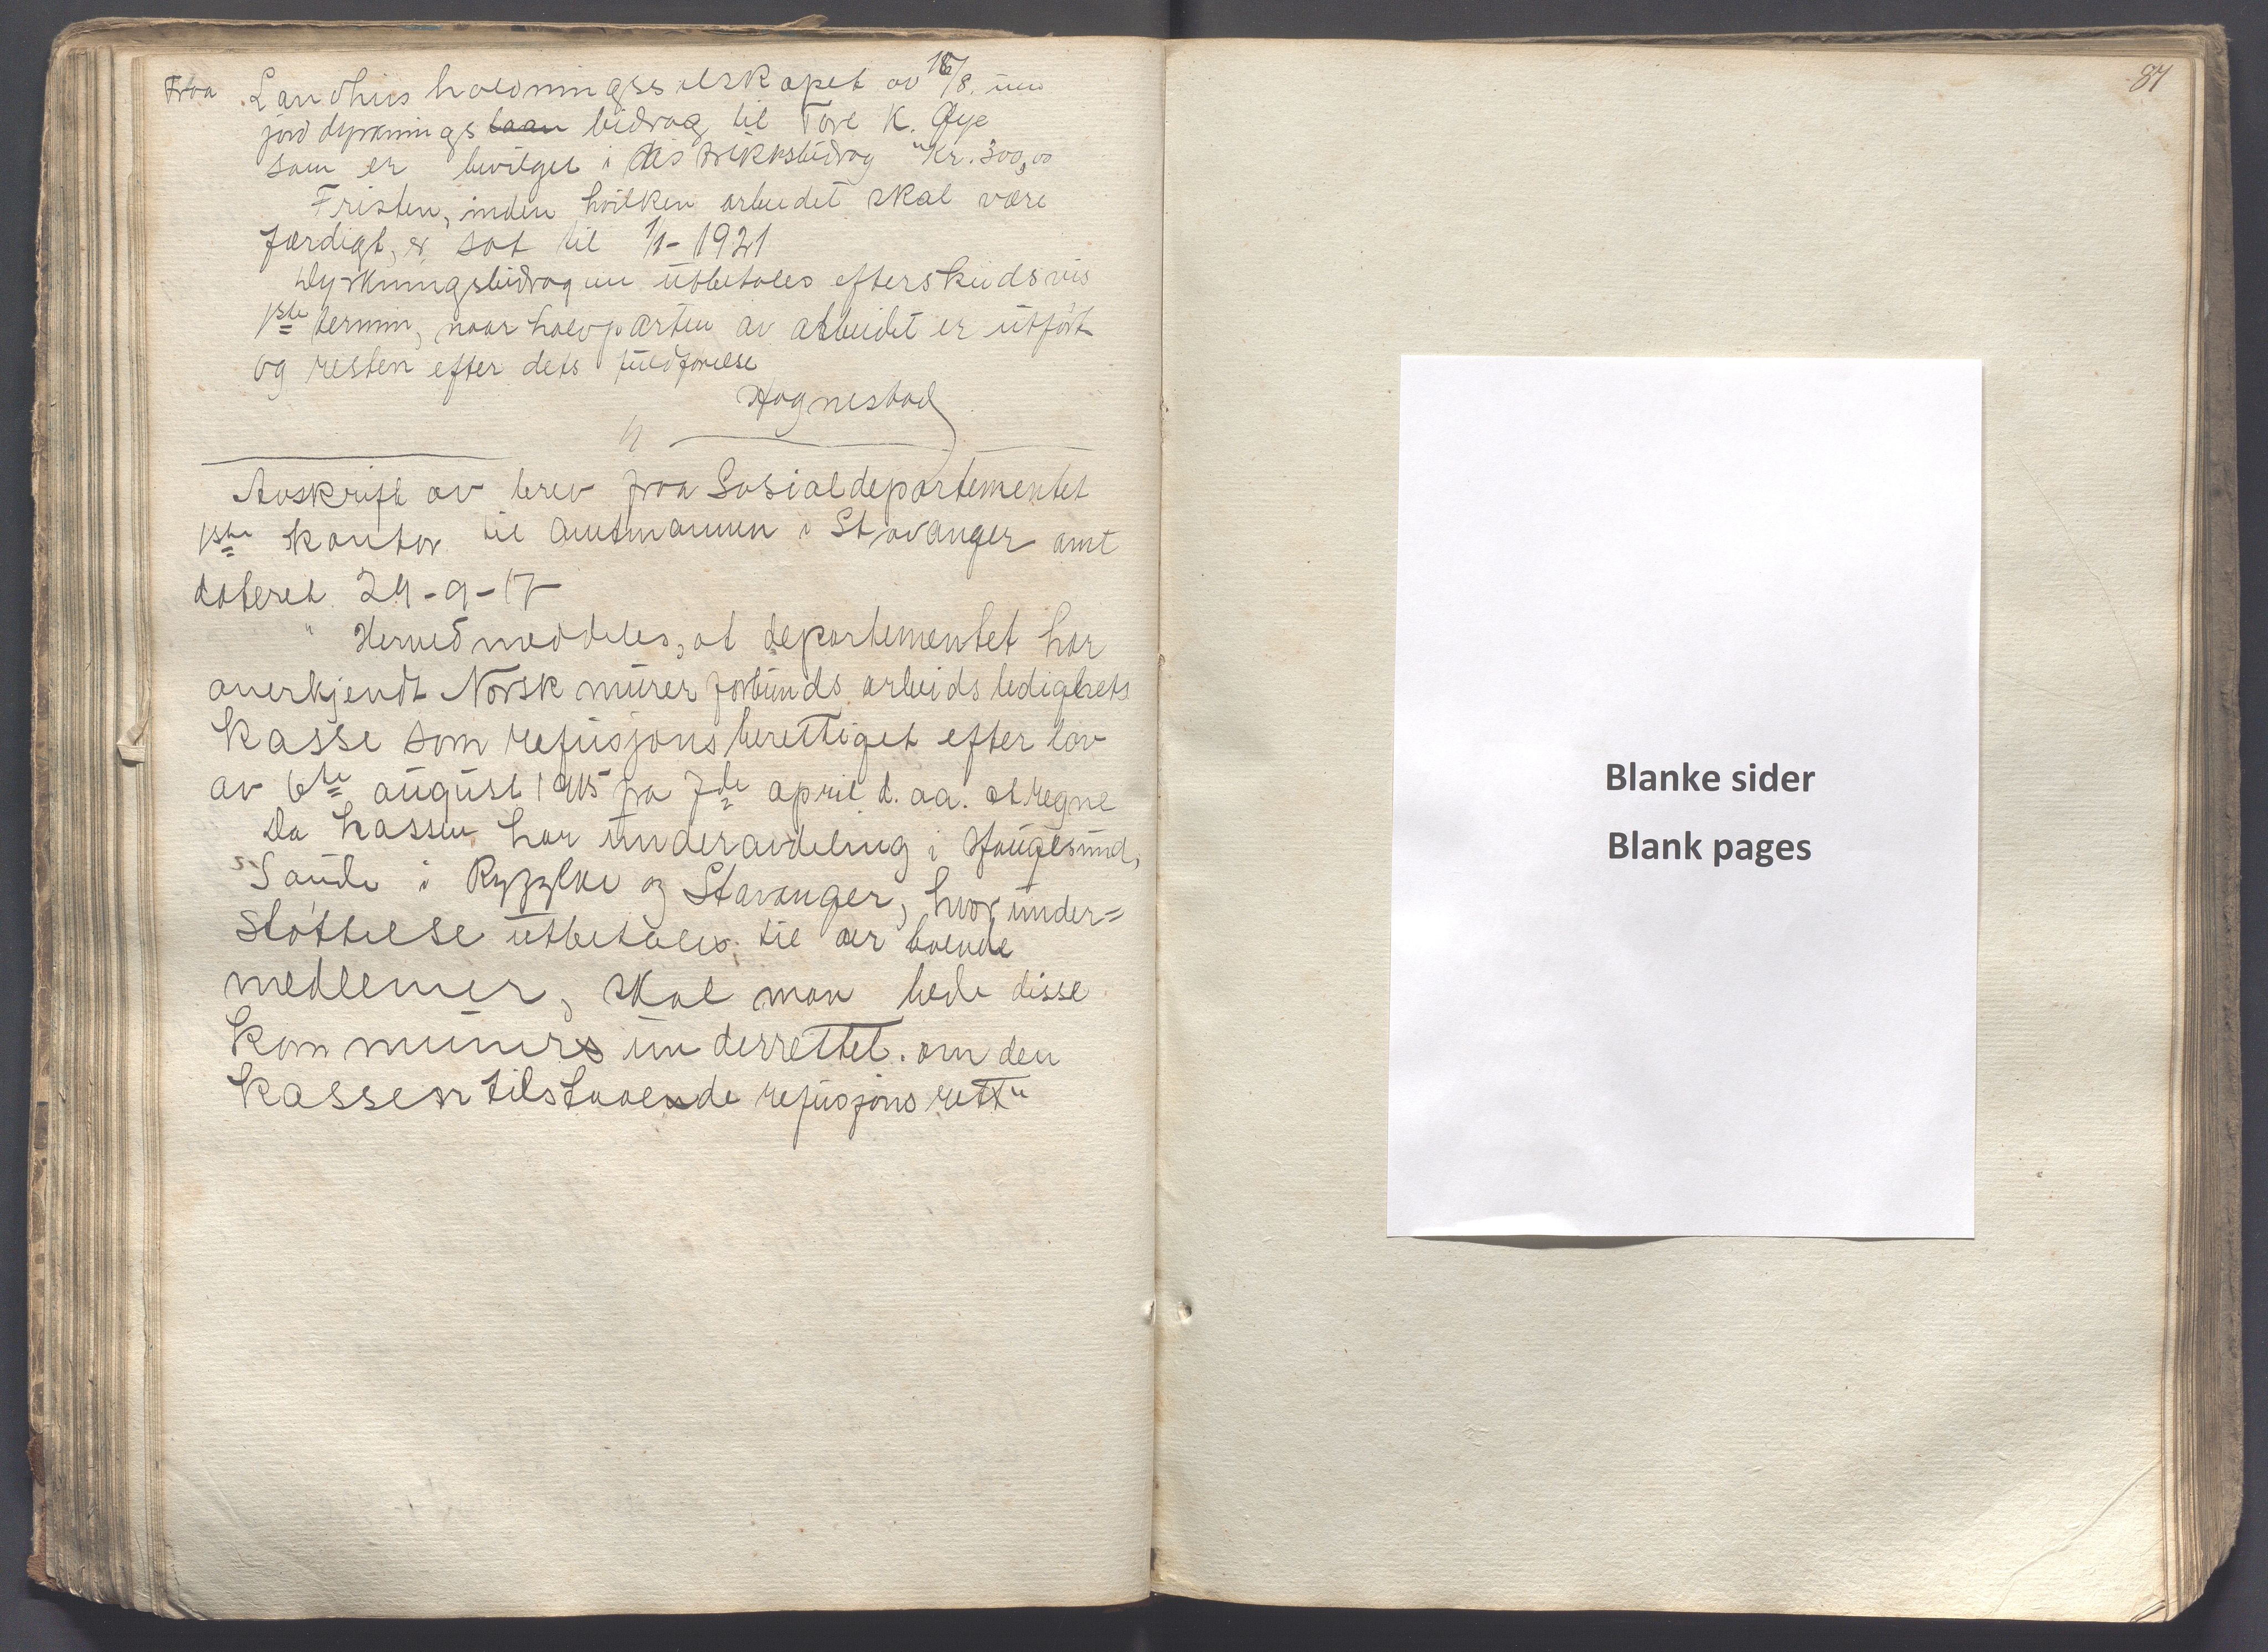 Fraa Landhusholdningsselskapet av 16/8. um
jorddyrkningslaan bidrag til Tore K. Øye
som er bevilget i distriktsbidrag "Kr. 300,00
Fristen, inden hvilken arbeidet skal være
færdigt, er sat til 1/1 - 1921
Dyrkningsbidragene utbetales efterskudsvis
1ste termin, naar halvparten av arbeidet er utført
og resten efter dets fuldførelse
Hognestad
"
Avskrift av brev fraa Sosialdepartementet
1ste kontor til Amtmannen i Stavanger amt
dateret 29-9-17
" Herved meddeles, at departementet har
anerkjendt Norsk murerforbunds arbeidsledighets
kasse som refusjonsberettiget efter lov
av 6te august 1915 fra 7de april d. aa. at regne
Da kassen har underavdeling i Haugesund,
Saude i Ryfylke og Stavanger, hvor under=
støttelse utbetales til der boende
medlemer, skal man bede disse
kommuners underrettet. om den
kassen tilstaaende refusjonsrett"
87
Blanke sider
Blank pages